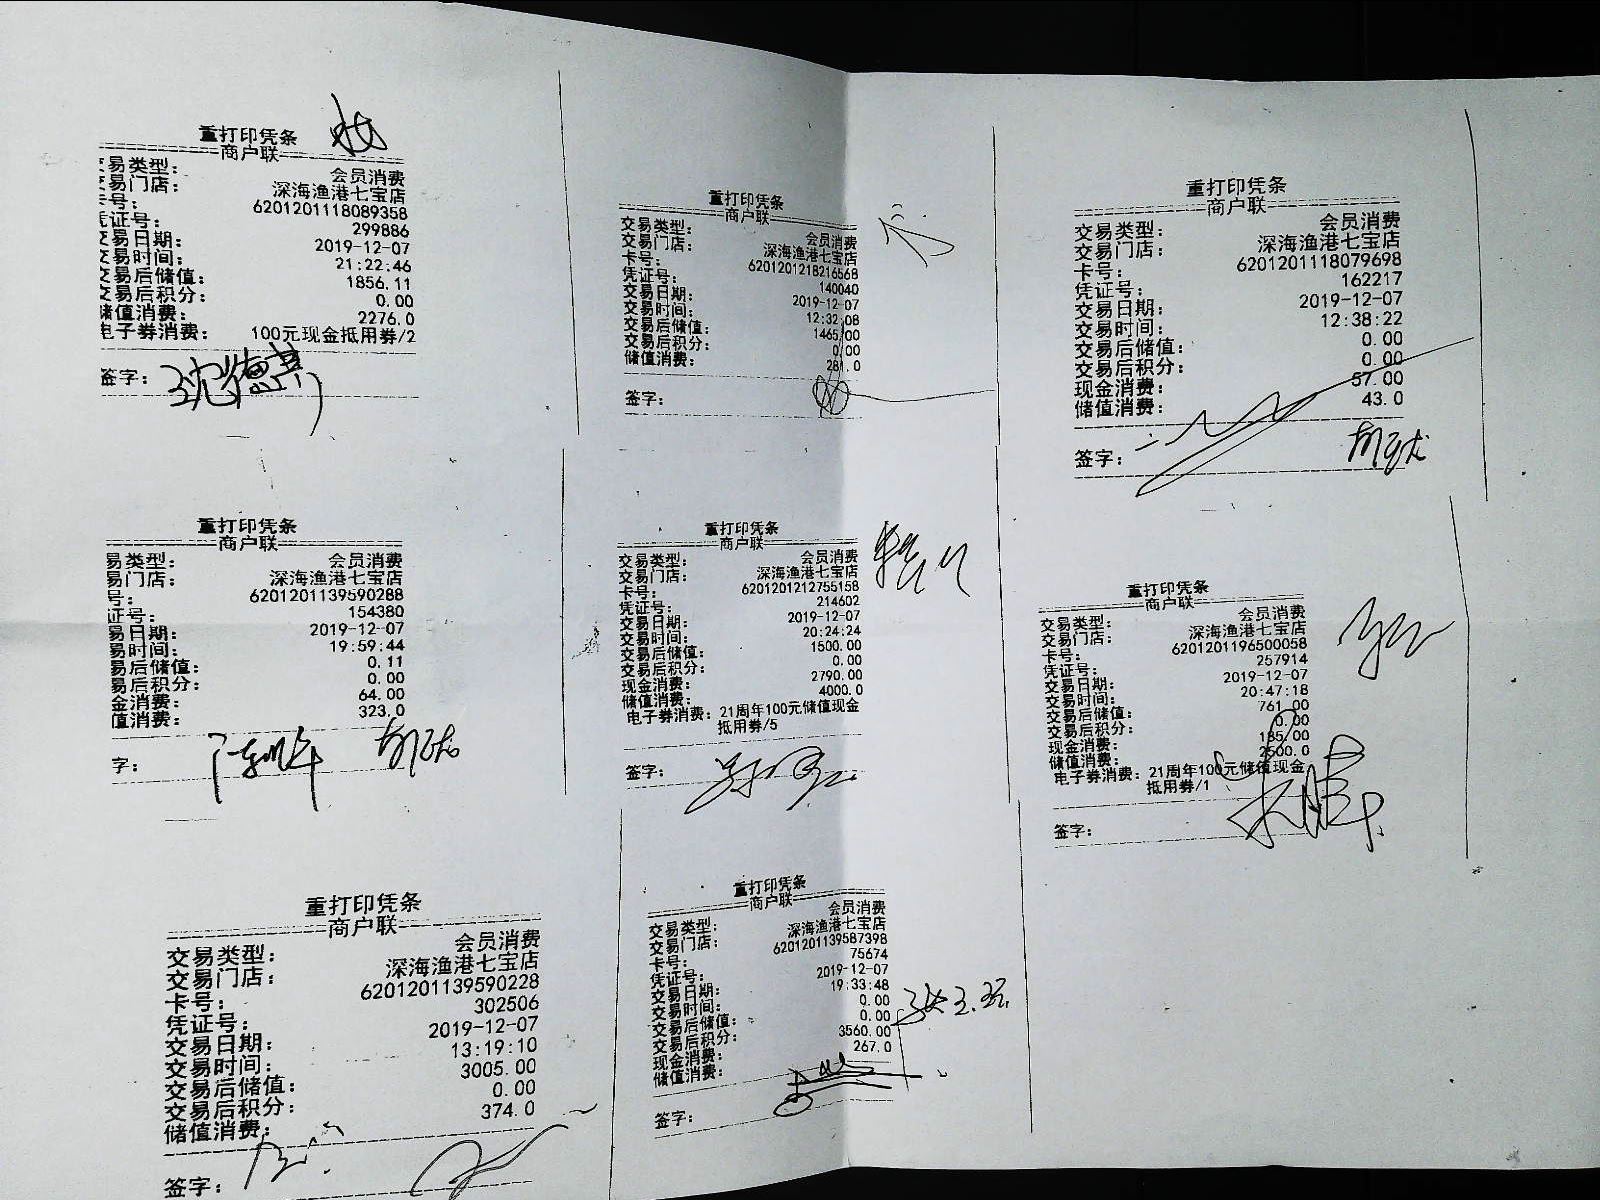 重打印凭条
商户联
易类型： 会员消费
易门店： 深海渔港七宝店
号： 6201201118089358
凭证号： 299886
交易日期： 2019-12-07
交易时间： 21:22:46
交易后储值： 1856.11
交易后积分： 0.00
储值消费： 2276.0
电子券消费： 100元现金抵用券/2
签字：
重打印凭条
商户联
交易类型： 会员消费
交易门店： 深海渔港七宝店
卡号： 6201201218216568
凭证号： 140040
交易日期： 2019-12-07
交易时间： 12:32:08
交易后储值： 1465.00
交易后积分： 0.00
储值消费： 281.0
签字：
重打印凭条
商户联
交易类型： 会员消费
交易门店： 深海渔港七宝店
卡号： 6201201118079698
凭证号： 162217
交易日期： 2019-12-07
交易时间： 12:38:22
交易后储值： 0.00
交易后积分： 0.00
现金消费： 57.00
储值消费： 43.0
签字：
重打印凭条
商户联
易类型： 会员消费
易门店： 深海渔港七宝店
号： 6201201139590288
证号： 154380
易日期： 2019-12-07
易时间： 19:59:44
易后储值： 0.11
易后积分： 0.00
金消费： 64.00
值消费： 323.0
字：
重打印凭条
商户联
交易类型： 会员消费
交易门店： 深海渔港七宝店
卡号： 6201201212755158
凭证号： 214602
交易日期： 2019-12-07
交易时间： 20:24:24
交易后储值： 1500.00
交易后积分： 0.00
现金消费： 2790.00
储值消费： 4000.0
电子券消费： 21周年100元储值现金
抵用券/5
签字：
重打印凭条
商户联
交易类型： 会员消费
交易门店： 深海渔港七宝店
卡号： 6201201196500058
凭证号： 257914
交易日期： 2019-12-07
交易时间： 20:47:18
交易后储值： 761.00
交易后积分： 0.00
现金消费： 185.00
储值消费： 2500.0
电子券消费： 21周年100元储值现金
抵用券/1
签字：
重打印凭条
商户联
交易类型： 会员消费
交易门店： 深海渔港七宝店
卡号： 6201201139590228
凭证号： 302506
交易日期： 2019-12-07
交易时间： 13:19:10
交易后储值： 3005.00
交易后积分： 0.00
储值消费： 374.0
签字：
重打印凭条
商户联
交易类型： 会员消费
交易门店： 深海渔港七宝店
卡号： 6201201139587398
凭证号： 75674
交易日期： 2019-12-07
交易时间： 19:33:48
交易后储值： 0.00
交易后积分： 0.00
现金消费： 3560.00
储值消费： 267.0
签字：